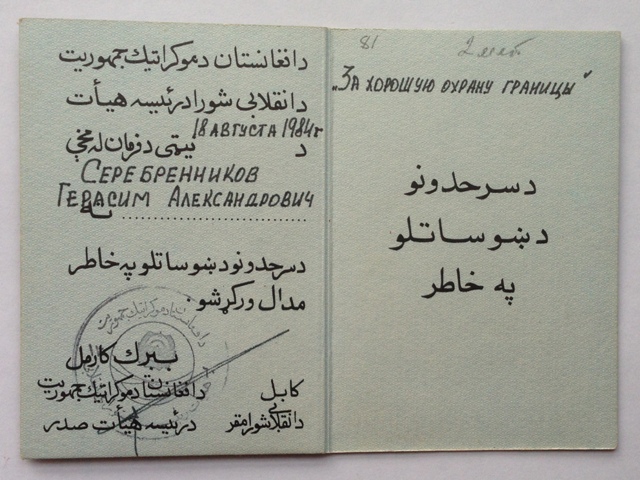 د افغانستان دموکراتيك جمهوريت
د انقلابی شورا د رئيسه هيأت
د 18 АВГУСТА 1984г نيمتی د فرمان له مخې
СЕРЕБРЕННИКОВ
ГЕРАСИМ АЛЕКСАНДРОВИЧ
ته
د سرحدونو د ښو ساتلو په خاطر
مدال ورکړ شو.
ببرك کارمل
د افغانستان دموکراتيك جمهوريت
د انقلابی شورا
د رئيسه هيأت صدر
کابل
مقر
81
„ЗА ХОРОШУЮ ОХРАНУ ГРАНИЦЫ"
د سرحدونو
د ښو ساتلو
په خاطر